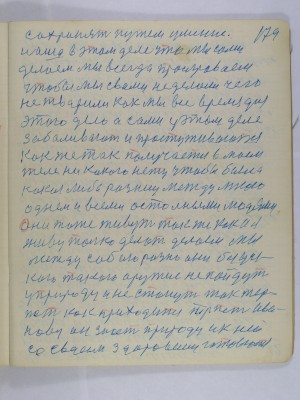 179
сохранят путем умение.
нашед в этом деле что мы сами
делаем мы всегда проигроваем
чтобы мы сваими неделоми чего
не тварили как мы все время для
этого дело а сами у этом деле
забаливают и простуживаются
как же так получается в моем
теле никакого нету чтобы была
какая либо разницу между мною
одним и всеми остальными людьми
они тоже живут так же как и я
живу только делат делаем мы
между собою разно они без вся-
кого такого оружие не пойдут
у природу и не станут так тер-
пет как приходится терпет Ива-
нову он знает природу и к ней
со сваем здоровием готовился